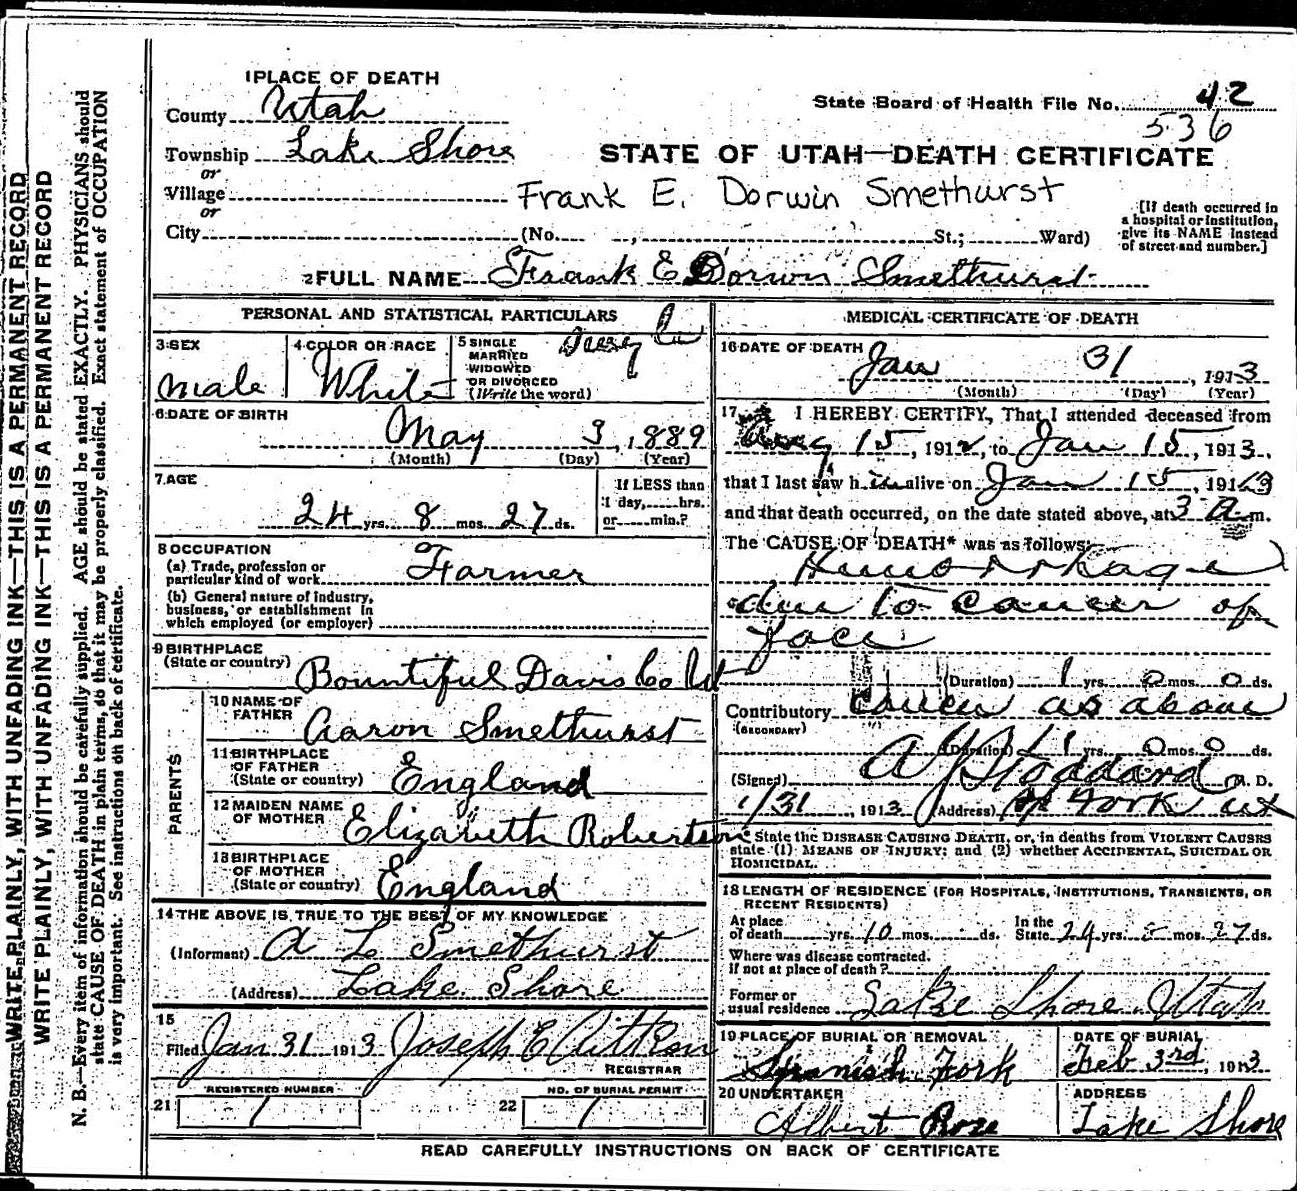 1 PLACE OF DEATH
County Utah
State Board of Health File No. 42
536
Township Lake Shore
or
STATE OF UTAH—DEATH CERTIFICATE
Village
Frank E. Dorwin Smethurst
or
City (No. , St.; Ward)
[If death occurred in
a hospital or institution,
give its NAME instead
of street and number.]
2 FULL NAME Frank E Dorwin Smethurst
PERSONAL AND STATISTICAL PARTICULARS
3 SEX
male
4 COLOR OR RACE
White
5 SINGLE
MARRIED
WIDOWED
OR DIVORCED
(Write the word)
6 DATE OF BIRTH
May 3, 1889
(Month) (Day) (Year)
7 AGE
24 yrs. 8 mos. 27 ds.
If LESS than
1 day, hrs.
or min.?
8 OCCUPATION
(a) Trade, profession or
particular kind of work Farmer
(b) General nature of industry,
business, or establishment in
which employed (or employer)
9 BIRTHPLACE
(State or country) Bountiful Davis Co Ut
PARENTS
10 NAME OF
FATHER
Aaron Smethurst
11 BIRTHPLACE
OF FATHER
(State or country) England
12 MAIDEN NAME
OF MOTHER
Elizabeth Robertson
13 BIRTHPLACE
OF MOTHER
(State or country) England
14 THE ABOVE IS TRUE TO THE BEST OF MY KNOWLEDGE
(Informant) A L Smethurst
(Address) Lake Shore
15
Filed Jan 31 1913 Joseph E Aitken
REGISTRAR
REGISTERED NUMBER
21 1
NO. OF BURIAL PERMIT
22 1
MEDICAL CERTIFICATE OF DEATH
16 DATE OF DEATH
Jan 31, 1913
(Month) (Day) (Year)
17 I HEREBY CERTIFY, That I attended deceased from
Aug 15, 1912, to Jan 15, 1913,
that I last saw him alive on Jan 15, 1913
and that death occurred, on the date stated above, at 3 a m.
The CAUSE OF DEATH* was as follows:
Hemorrhage
due to cancer of
face
(Duration) 1 yrs. 0 mos. 0 ds.
Contributory cancer as above
(SECONDARY)
(Duration) 1 yrs. 0 mos. 0 ds.
(Signed) A J Stoddard M. D.
1/31, 1913 (Address) Sp Fork Ut
* State the DISEASE CAUSING DEATH, or, in deaths from VIOLENT CAUSES
state (1) MEANS OF INJURY; and (2) whether ACCIDENTAL, SUICIDAL OR
HOMICIDAL.
18 LENGTH OF RESIDENCE (FOR HOSPITALS, INSTITUTIONS, TRANSIENTS, OR
RECENT RESIDENTS)
At place
of death yrs. 10 mos. ds.
In the
State 24 yrs. mos. 27 ds.
Where was disease contracted,
if not at place of death?
Former or
usual residence Lake Shore Utah
19 PLACE OF BURIAL OR REMOVAL
Spanish Fork
DATE OF BURIAL
Feb 3rd, 1913
20 UNDERTAKER
Albert Rose
ADDRESS
Lake Shore
READ CAREFULLY INSTRUCTIONS ON BACK OF CERTIFICATE
WRITE PLAINLY, WITH UNFADING INK—THIS IS A PERMANENT RECORD
WRITE PLAINLY, WITH UNFADING INK—THIS IS A PERMANENT RECORD
N. B.—Every item of information should be carefully supplied. AGE should be stated EXACTLY. PHYSICIANS should
state CAUSE OF DEATH in plain terms, so that it may be properly classified. Exact statement of OCCUPATION
is very important. See instructions on back of certificate.